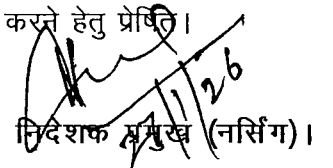 करने हेतु प्रेषित।
2/1/26
निदेशक प्रमुख (नर्सिंग)।